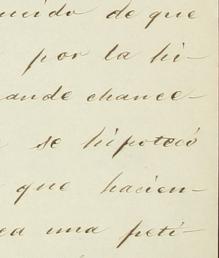 de que
por la hi-
ande chance-
se hipotecó
que hacien-
ea una peti-